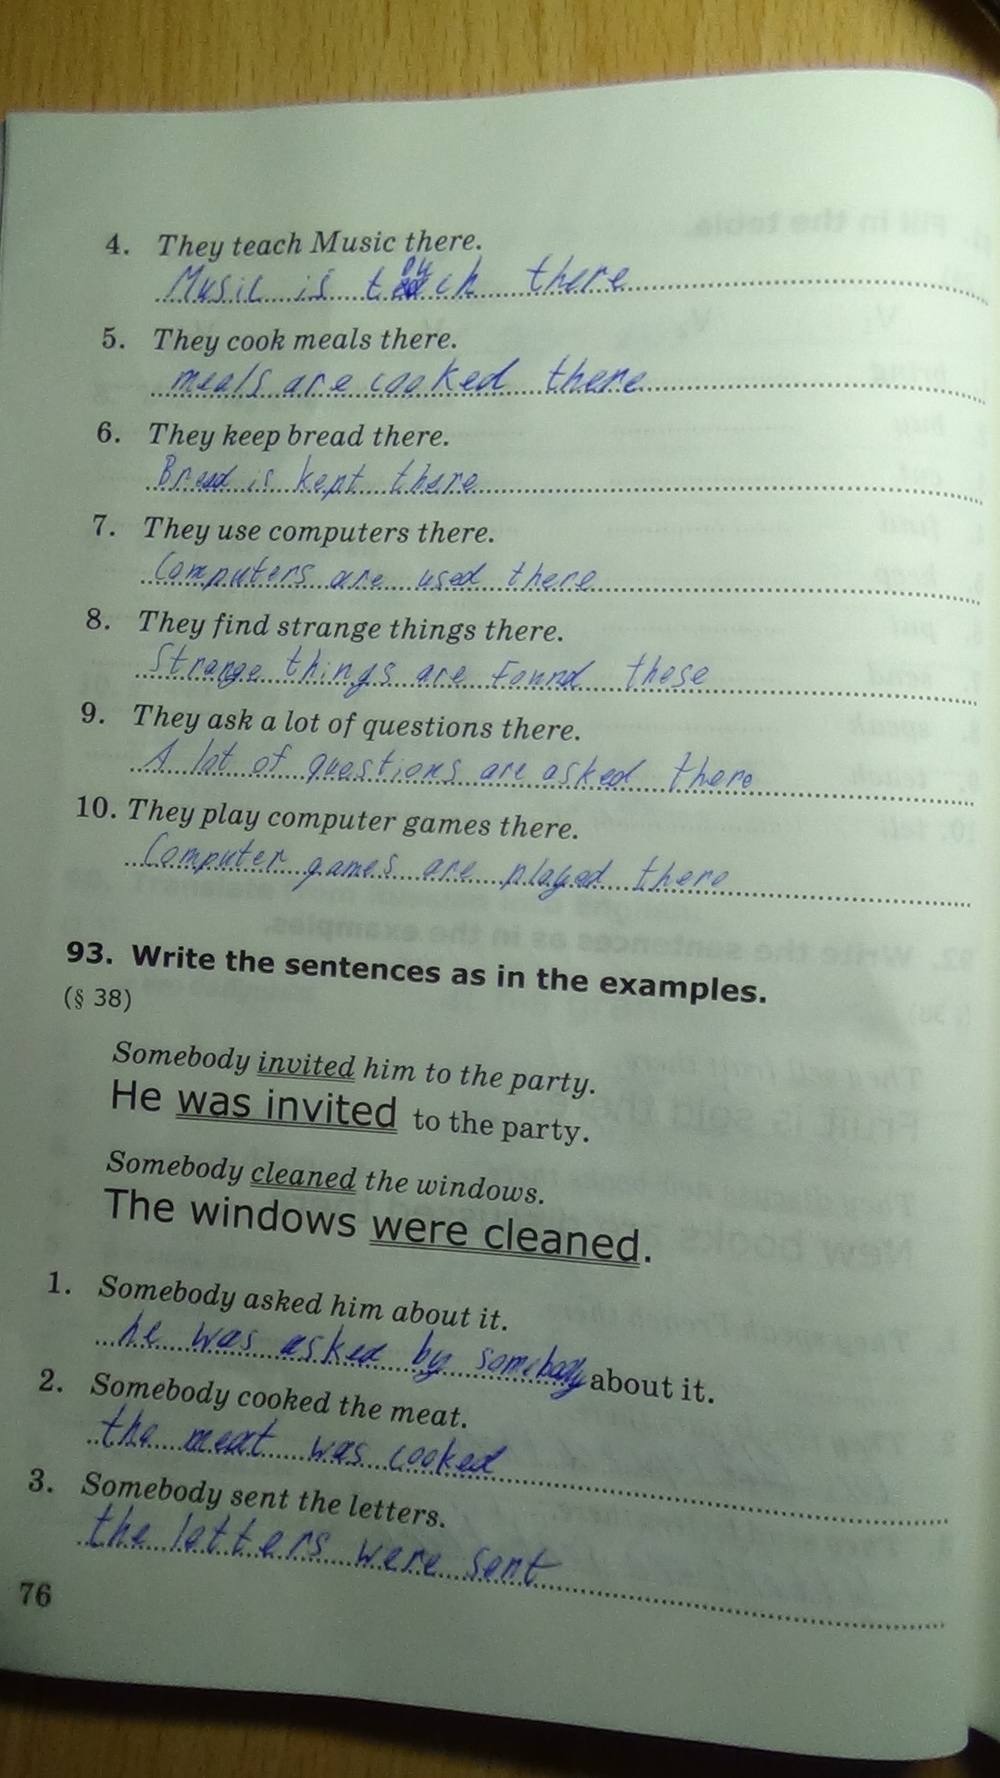 4. They teach Music there.
Music is touch there
5. They cook meals there.
meals are cooked there
6. They keep bread there.
Bread is kept there
7. They use computers there.
Computers are used there
8. They find strange things there.
Strange things are found these
9. They ask a lot of questions there.
A lot of questions are asked there
10. They play computer games there.
Computer games are played there
93. Write the sentences as in the examples.
(§ 38)
Somebody invited him to the party.
He was invited to the party.
Somebody cleaned the windows.
The windows were cleaned.
1. Somebody asked him about it.
he was asked by somebody about it.
2. Somebody cooked the meat.
the meat was cooked
3. Somebody sent the letters.
the letters were sent
76